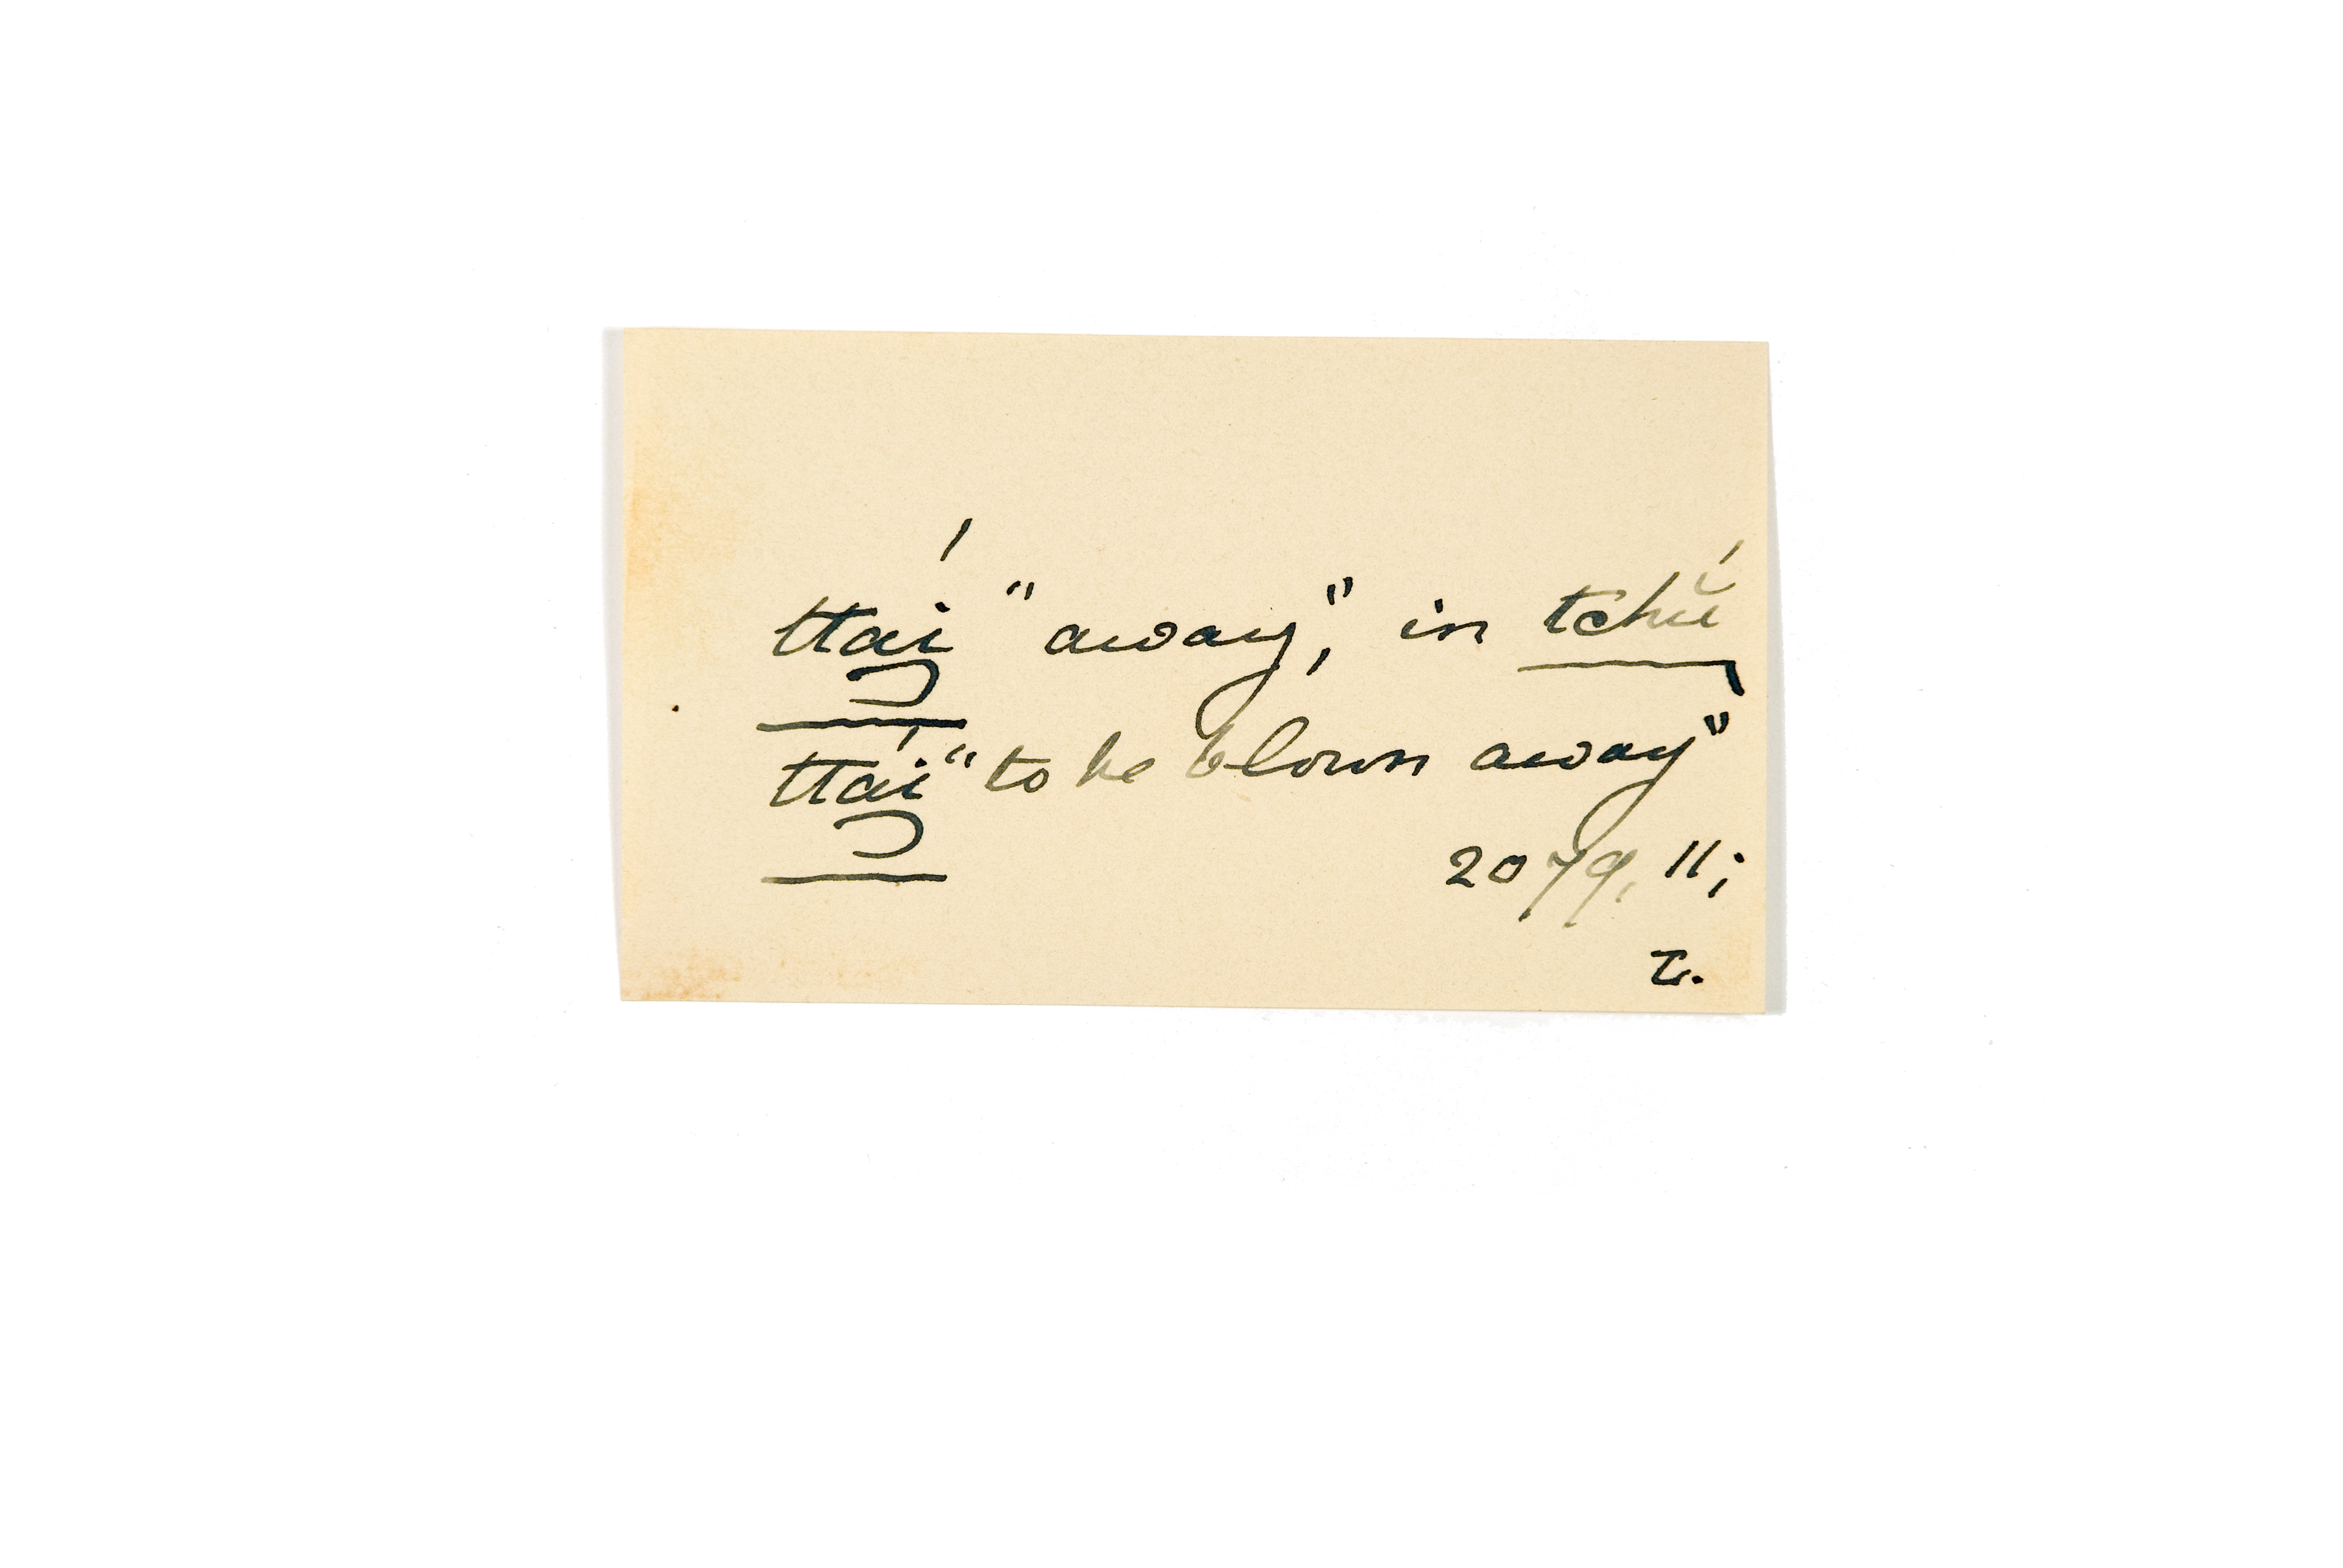 ttai̯´ "away," in tchŭ´
ttai̯´ "to be blown away"
2079, 11;
τ.